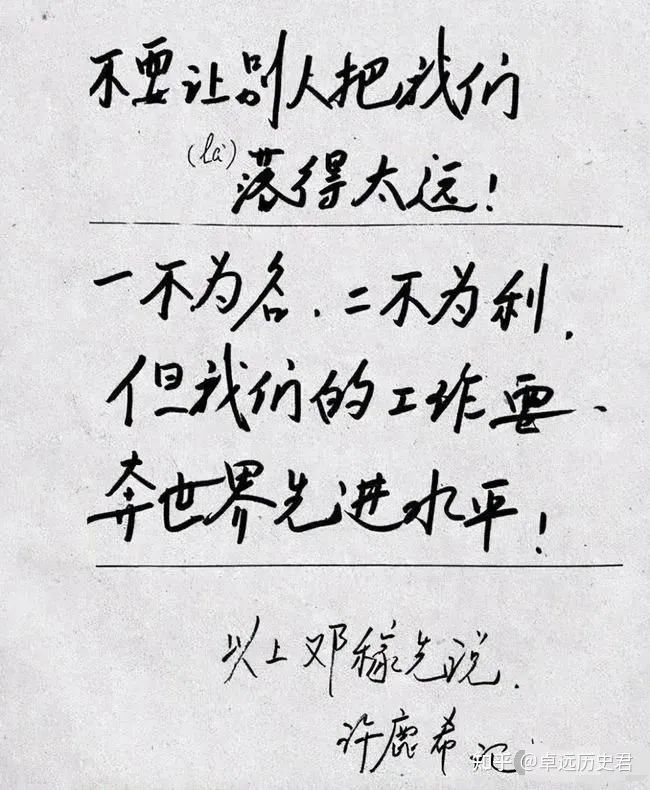 不要让别人把我们
(là)
落得太远!
一不为名、二不为利,
但我们的工作要、
奔世界先进水平!
以上邓稼先说.
许鹿希记
知乎 @卓远历史君